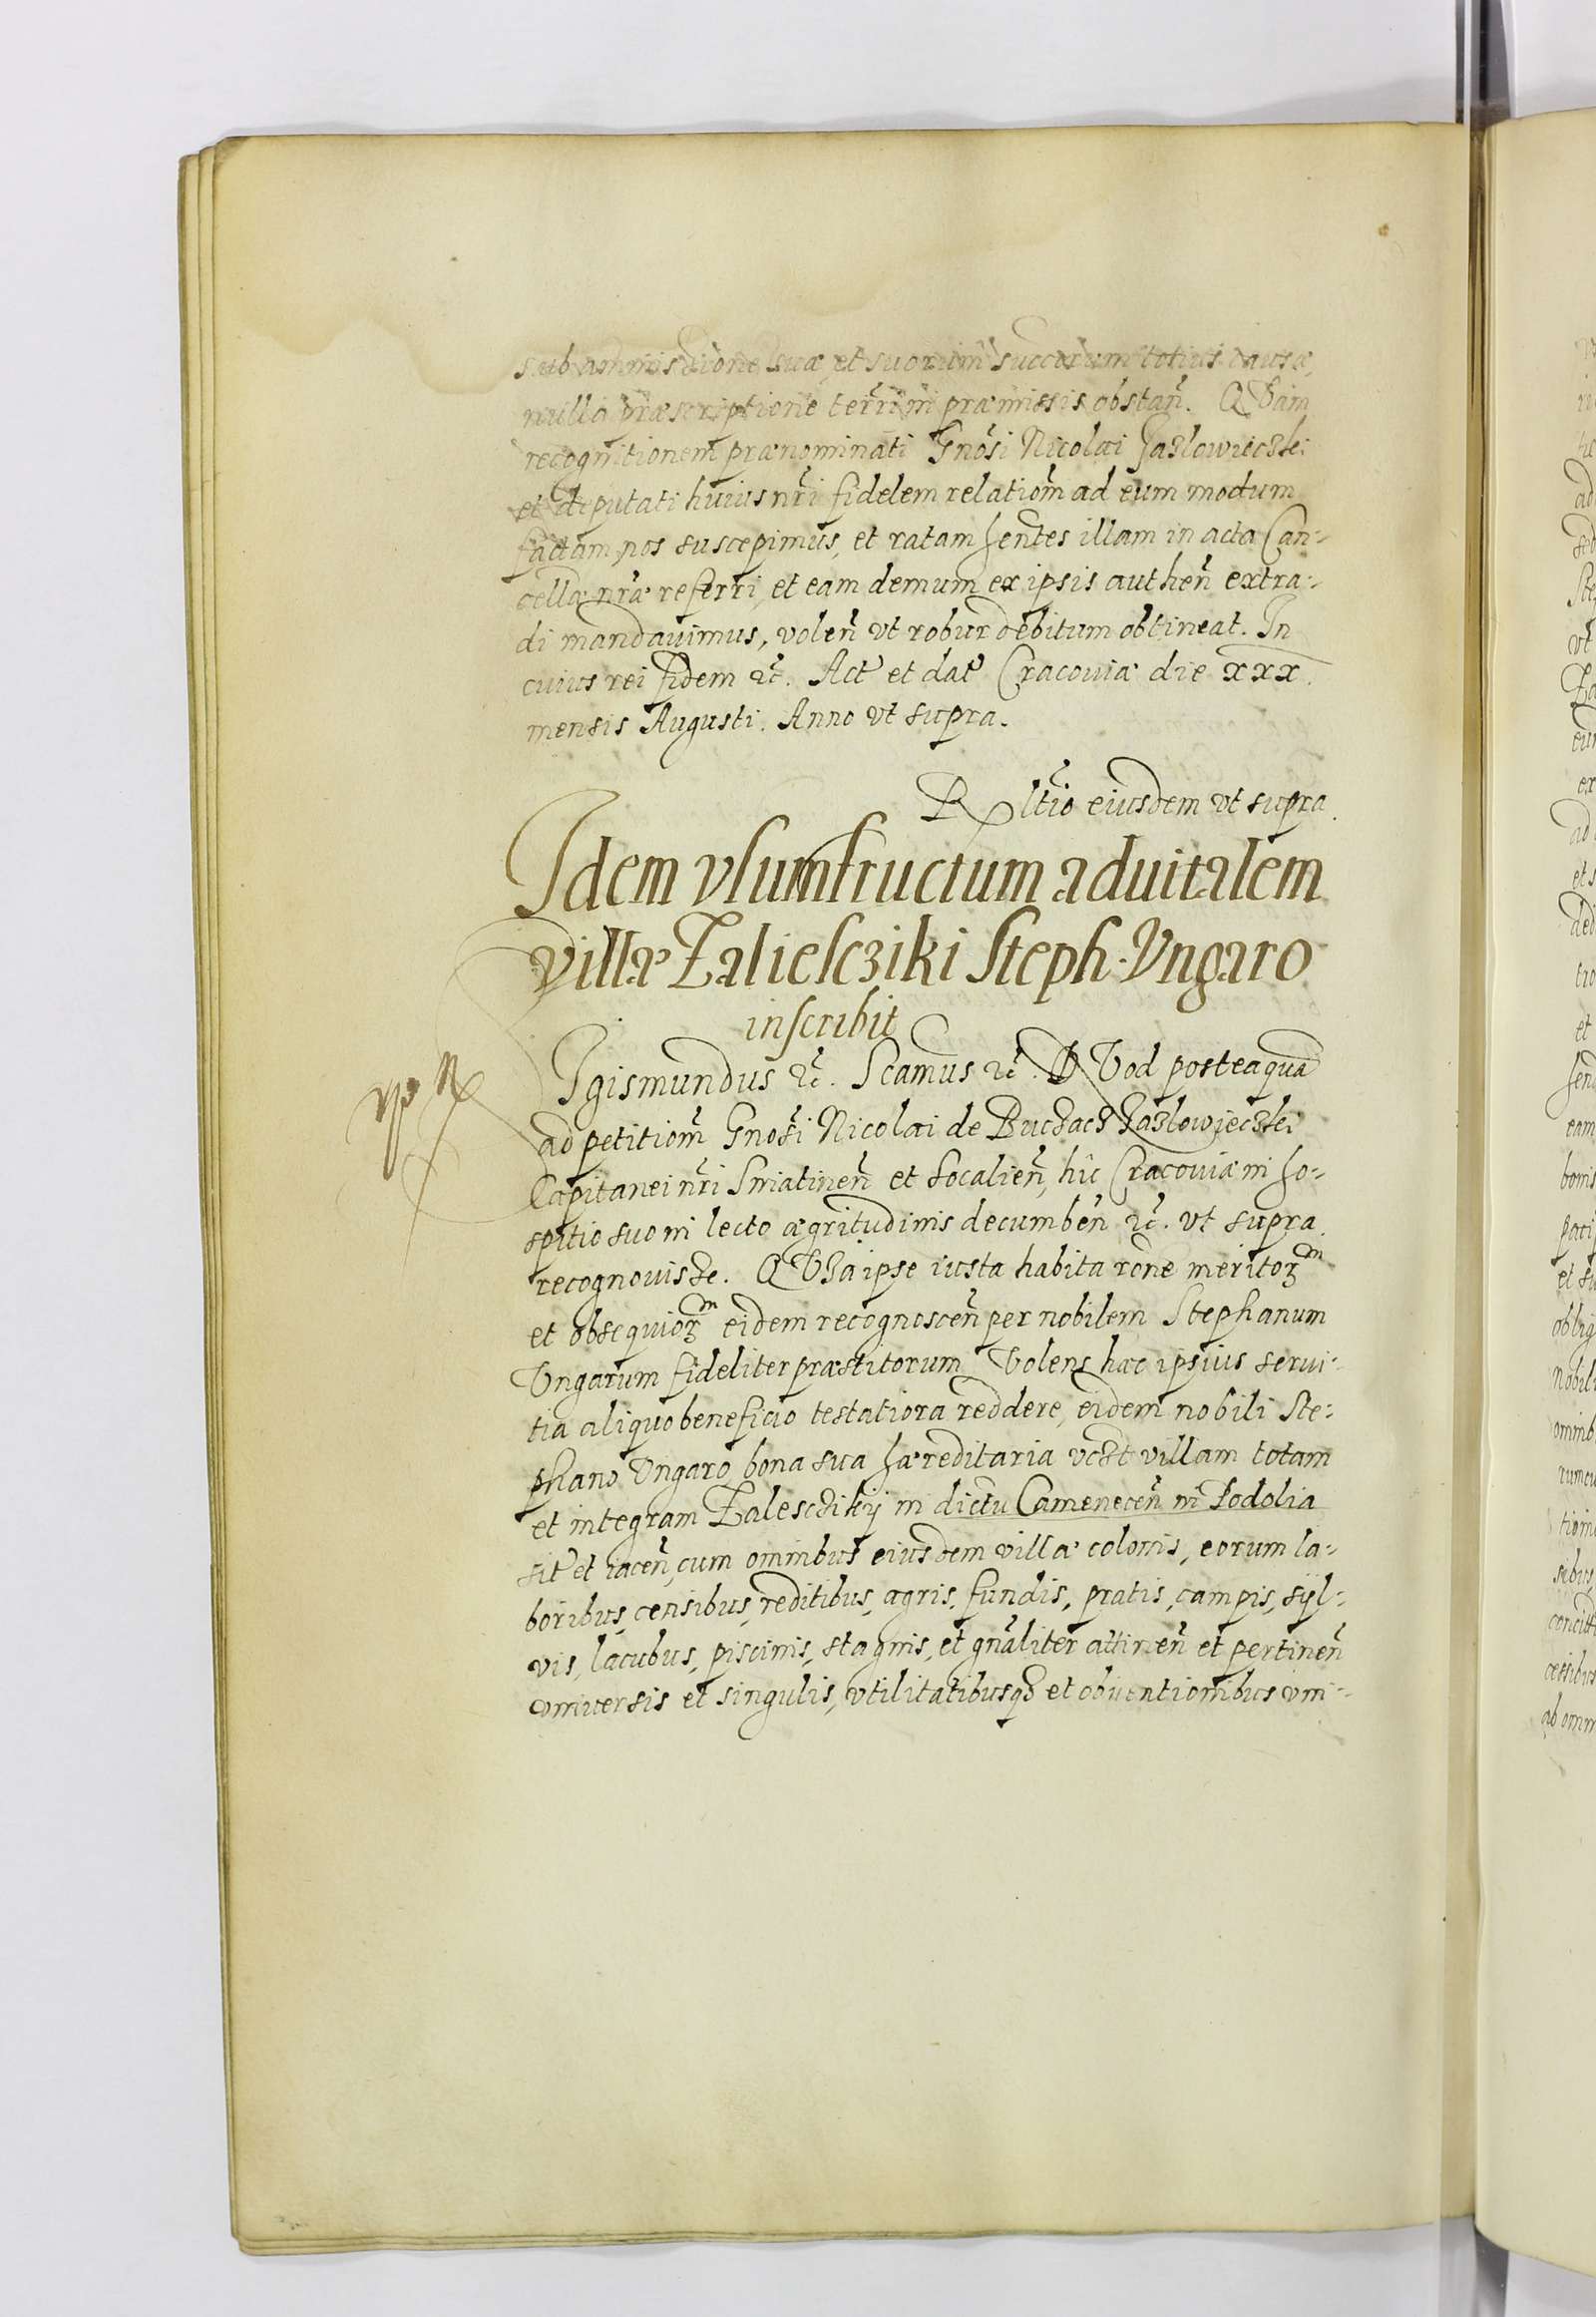 sub ammissione suæ, et suorum succorum totius causæ,
nulla præscriptione terr̃im præmissis obstañ. QVam
recognitionem prænominati Gnõsi Nicolai Jazlowieczki
et deputati huius nr̃i fidelem relatiom̃ ad eum modum
factam, nos suscepimus, et ratam hentes illam in acta Can-
cellæ nr̃æ referri, et eam demum ex ipsis authen̄ extra-
di mandauimus, volen̄ vt robur debitum obtineat. In
cuius rei fidem etc̃. Act et dat Cracouiæ die xxx.
mensis Augusti. Anno vt supra.
Rltĩo eiusdem vt supra.
Idem vsumfructum aduitalem
villæ Zaliescziki Steph. Vngaro
inscribit
Igismundus etc̃. Scamus etc̃. QVod posteaquã
ad petitiom̃ Gnõsi Nicolai de Buczacz Jazlowjeczki
Capitanei nr̃i Sniatinen̄ et Socalien̄, hic Cracouiæ in ho-
spitio suo in lecto ægritudinis decumben̄ etc̃. vt supra
recognouisse. QVia ipse iusta habita rõne meritorᵐ
et obsequiorᵐ eidem recognoscen̄ per nobilem Stephanum
Vngarum fideliter præstitorum Volens hæc ipsius serui-
tia aliquo beneficio testatiora reddere, eidem nobili Ste-
phano Vngaro bona sua hæreditaria vczt villam totam
et integram Zalesczikij in dictu Camenecen̄ in Podolia
sit et iacen̄, cum omnibus eiusdem villæ colonis, eorum la-
boribus, censibus, reditibus, agris, fundis, pratis, campis, syl-
vis, lacubus, piscinis, stagnis, et gnãliter attinen̄ et pertinen̄
vniuersis et singulis, vtilitatibusqз et obuentionibus vni-